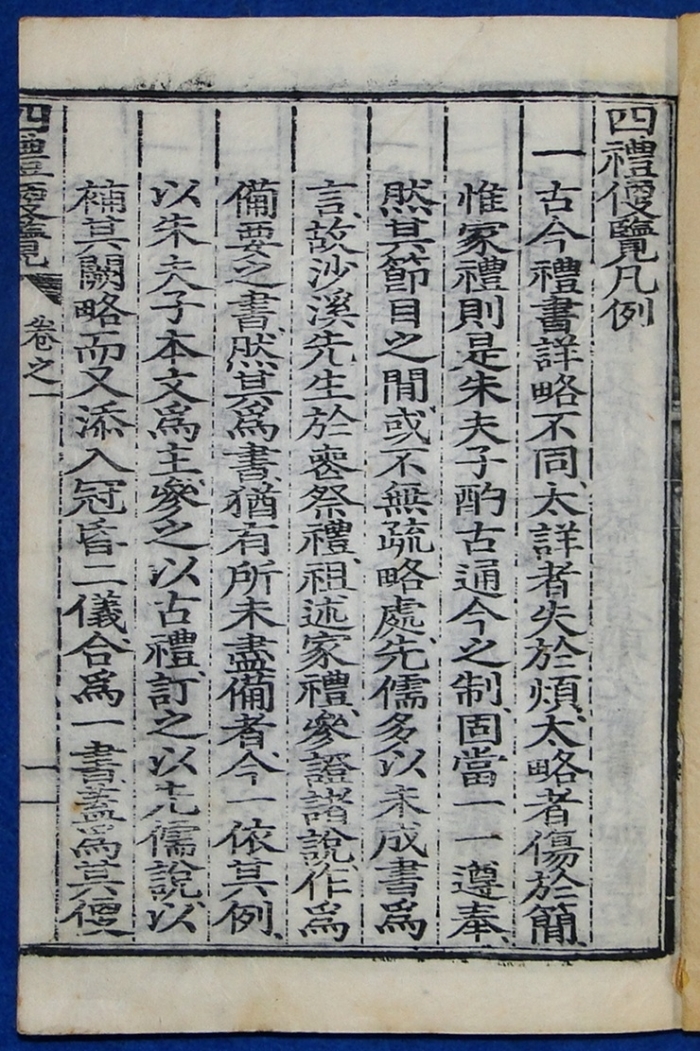 四禮便覽凡例
一古今禮書詳略不同、太詳者失於煩、太略者傷於簡、
惟家禮則是朱夫子酌古通今之制、固當一一遵奉、
然其節目之間、或不無疏略處、先儒多以未成書爲
言、故沙溪先生於喪祭禮、祖述家禮、參證諸說、作爲
備要之書、然其爲書、猶有所未盡備者、今一依其例、
以朱夫子本文爲主、參之以古禮、訂之以先儒說、以
補其闕略、而又添入冠昏二儀、合爲一書、蓋爲其便
四禮便覽 卷之一 一